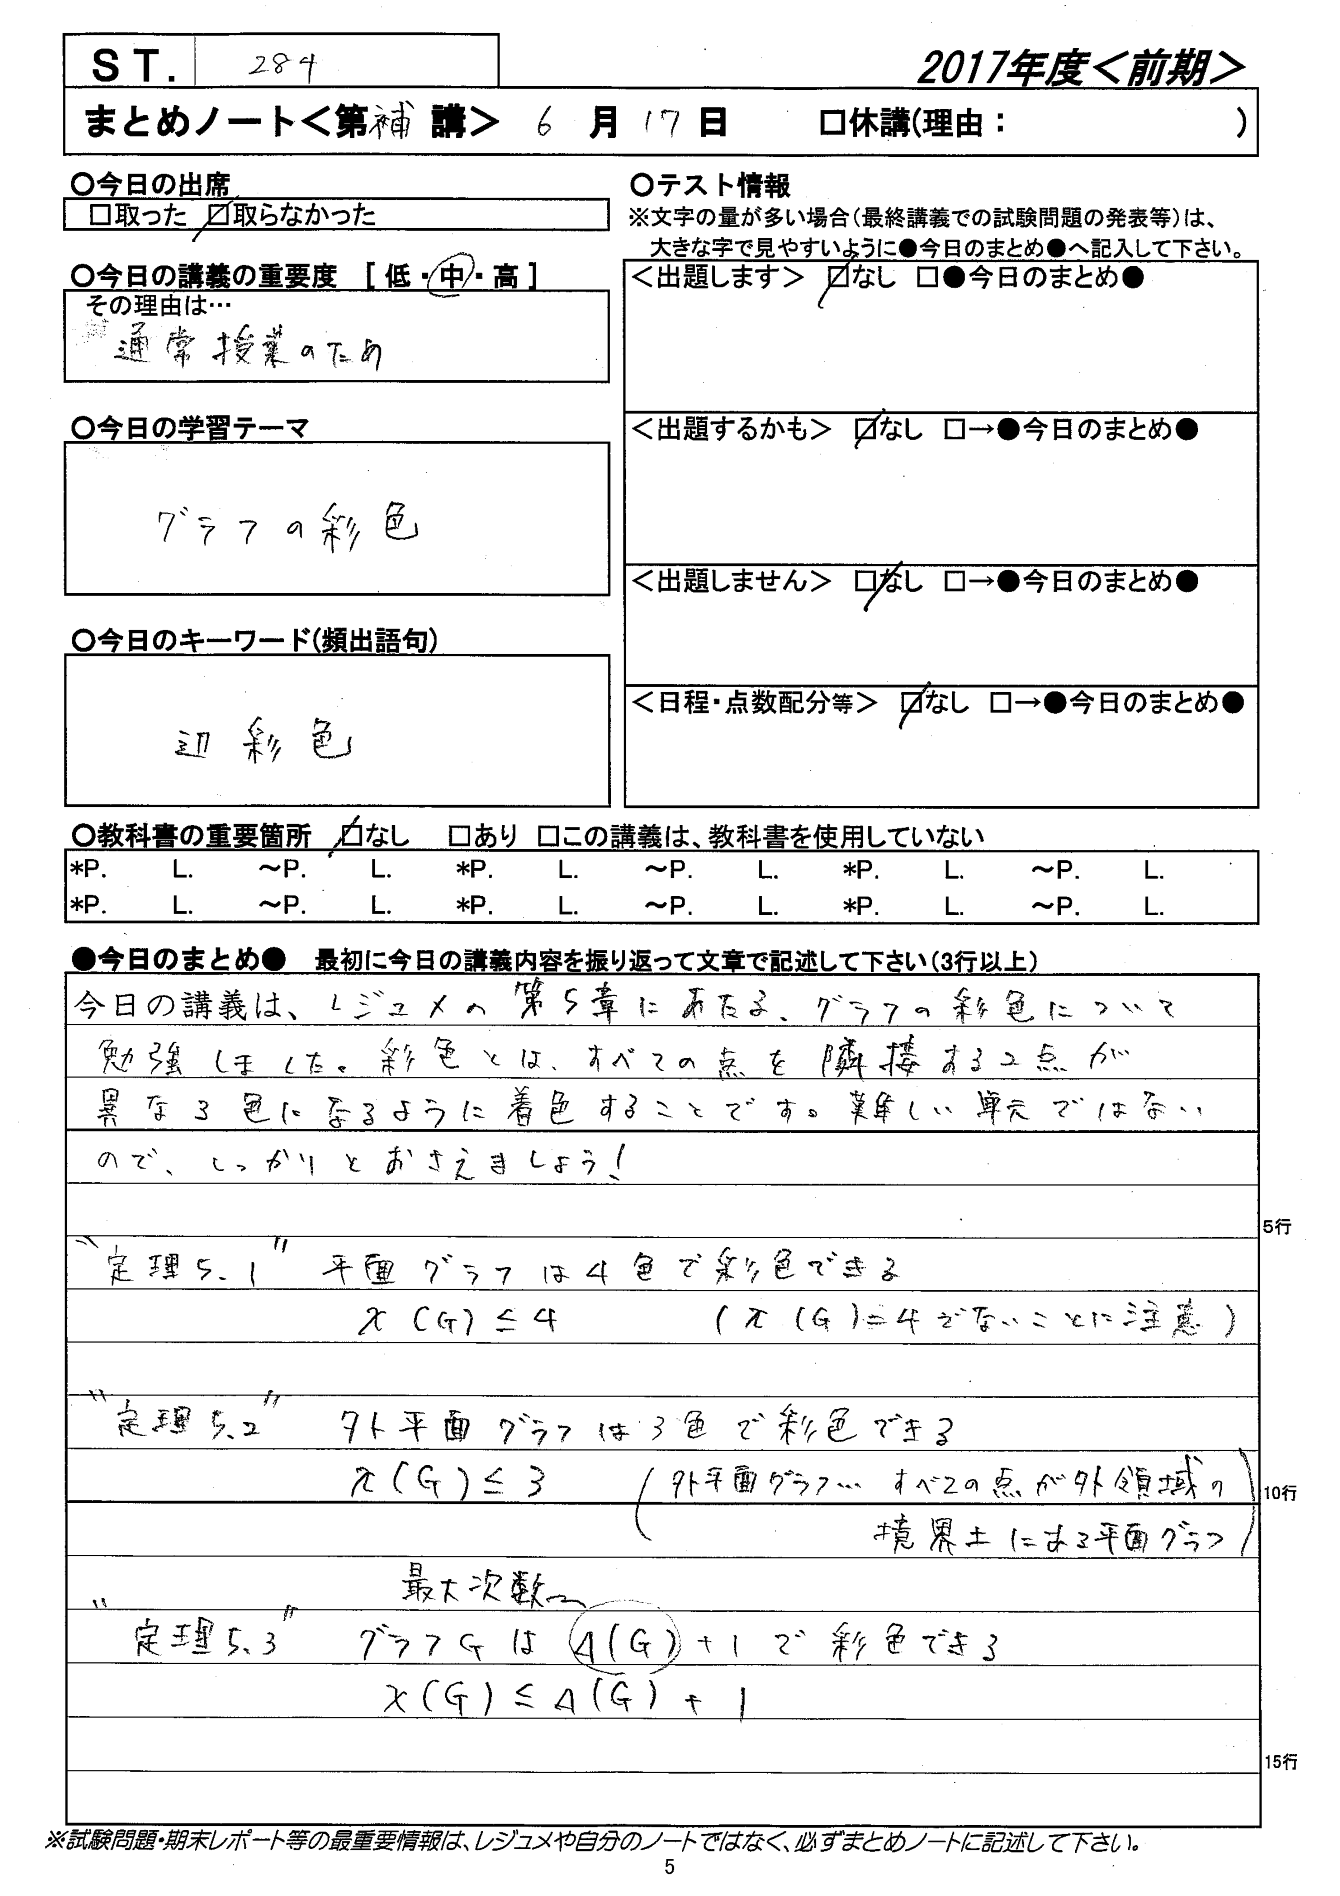 ST. 284
2017年度＜前期＞
まとめノート＜第補講＞ 6月17日 □休講(理由： )
○今日の出席
□取った ☑取らなかった
○今日の講義の重要度 [ 低・中・高 ]
その理由は…
通常授業のため
○今日の学習テーマ
グラフの彩色
○今日のキーワード(頻出語句)
辺彩色
○テスト情報
※文字の量が多い場合(最終講義での試験問題の発表等)は、
大きな字で見やすいように●今日のまとめ●へ記入して下さい。
＜出題します＞ ☑なし □●今日のまとめ●
＜出題するかも＞ ☑なし □→●今日のまとめ●
＜出題しません＞ ☑なし □→●今日のまとめ●
＜日程・点数配分等＞ ☑なし □→●今日のまとめ●
○教科書の重要箇所 ☑なし □あり □この講義は、教科書を使用していない
*P. L. ～P. L. *P. L. ～P. L. *P. L. ～P. L.
*P. L. ～P. L. *P. L. ～P. L. *P. L. ～P. L.
●今日のまとめ● 最初に今日の講義内容を振り返って文章で記述して下さい(3行以上)
今日の講義は、レジュメの第5章にあたる、グラフの彩色について
勉強しました。彩色とは、すべての点を隣接する2点が
異なる色になるように着色することです。難しい単元ではない
ので、しっかりとおさえましょう！
5行
"定理5.1" 平面グラフは4色で彩色できる
χ(G)≤4 (χ(G)=4でないことに注意)
"定理5.2" 外平面グラフは3色で彩色できる
χ(G)≤3 (外平面グラフ… すべての点が外領域の
10行
境界上にある平面グラフ)
最大次数
"定理5.3" グラフGは Δ(G)+1で彩色できる
χ(G)≤Δ(G)+1
15行
※試験問題・期末レポート等の最重要情報は、レジュメや自分のノートではなく、必ずまとめノートに記述して下さい。
5